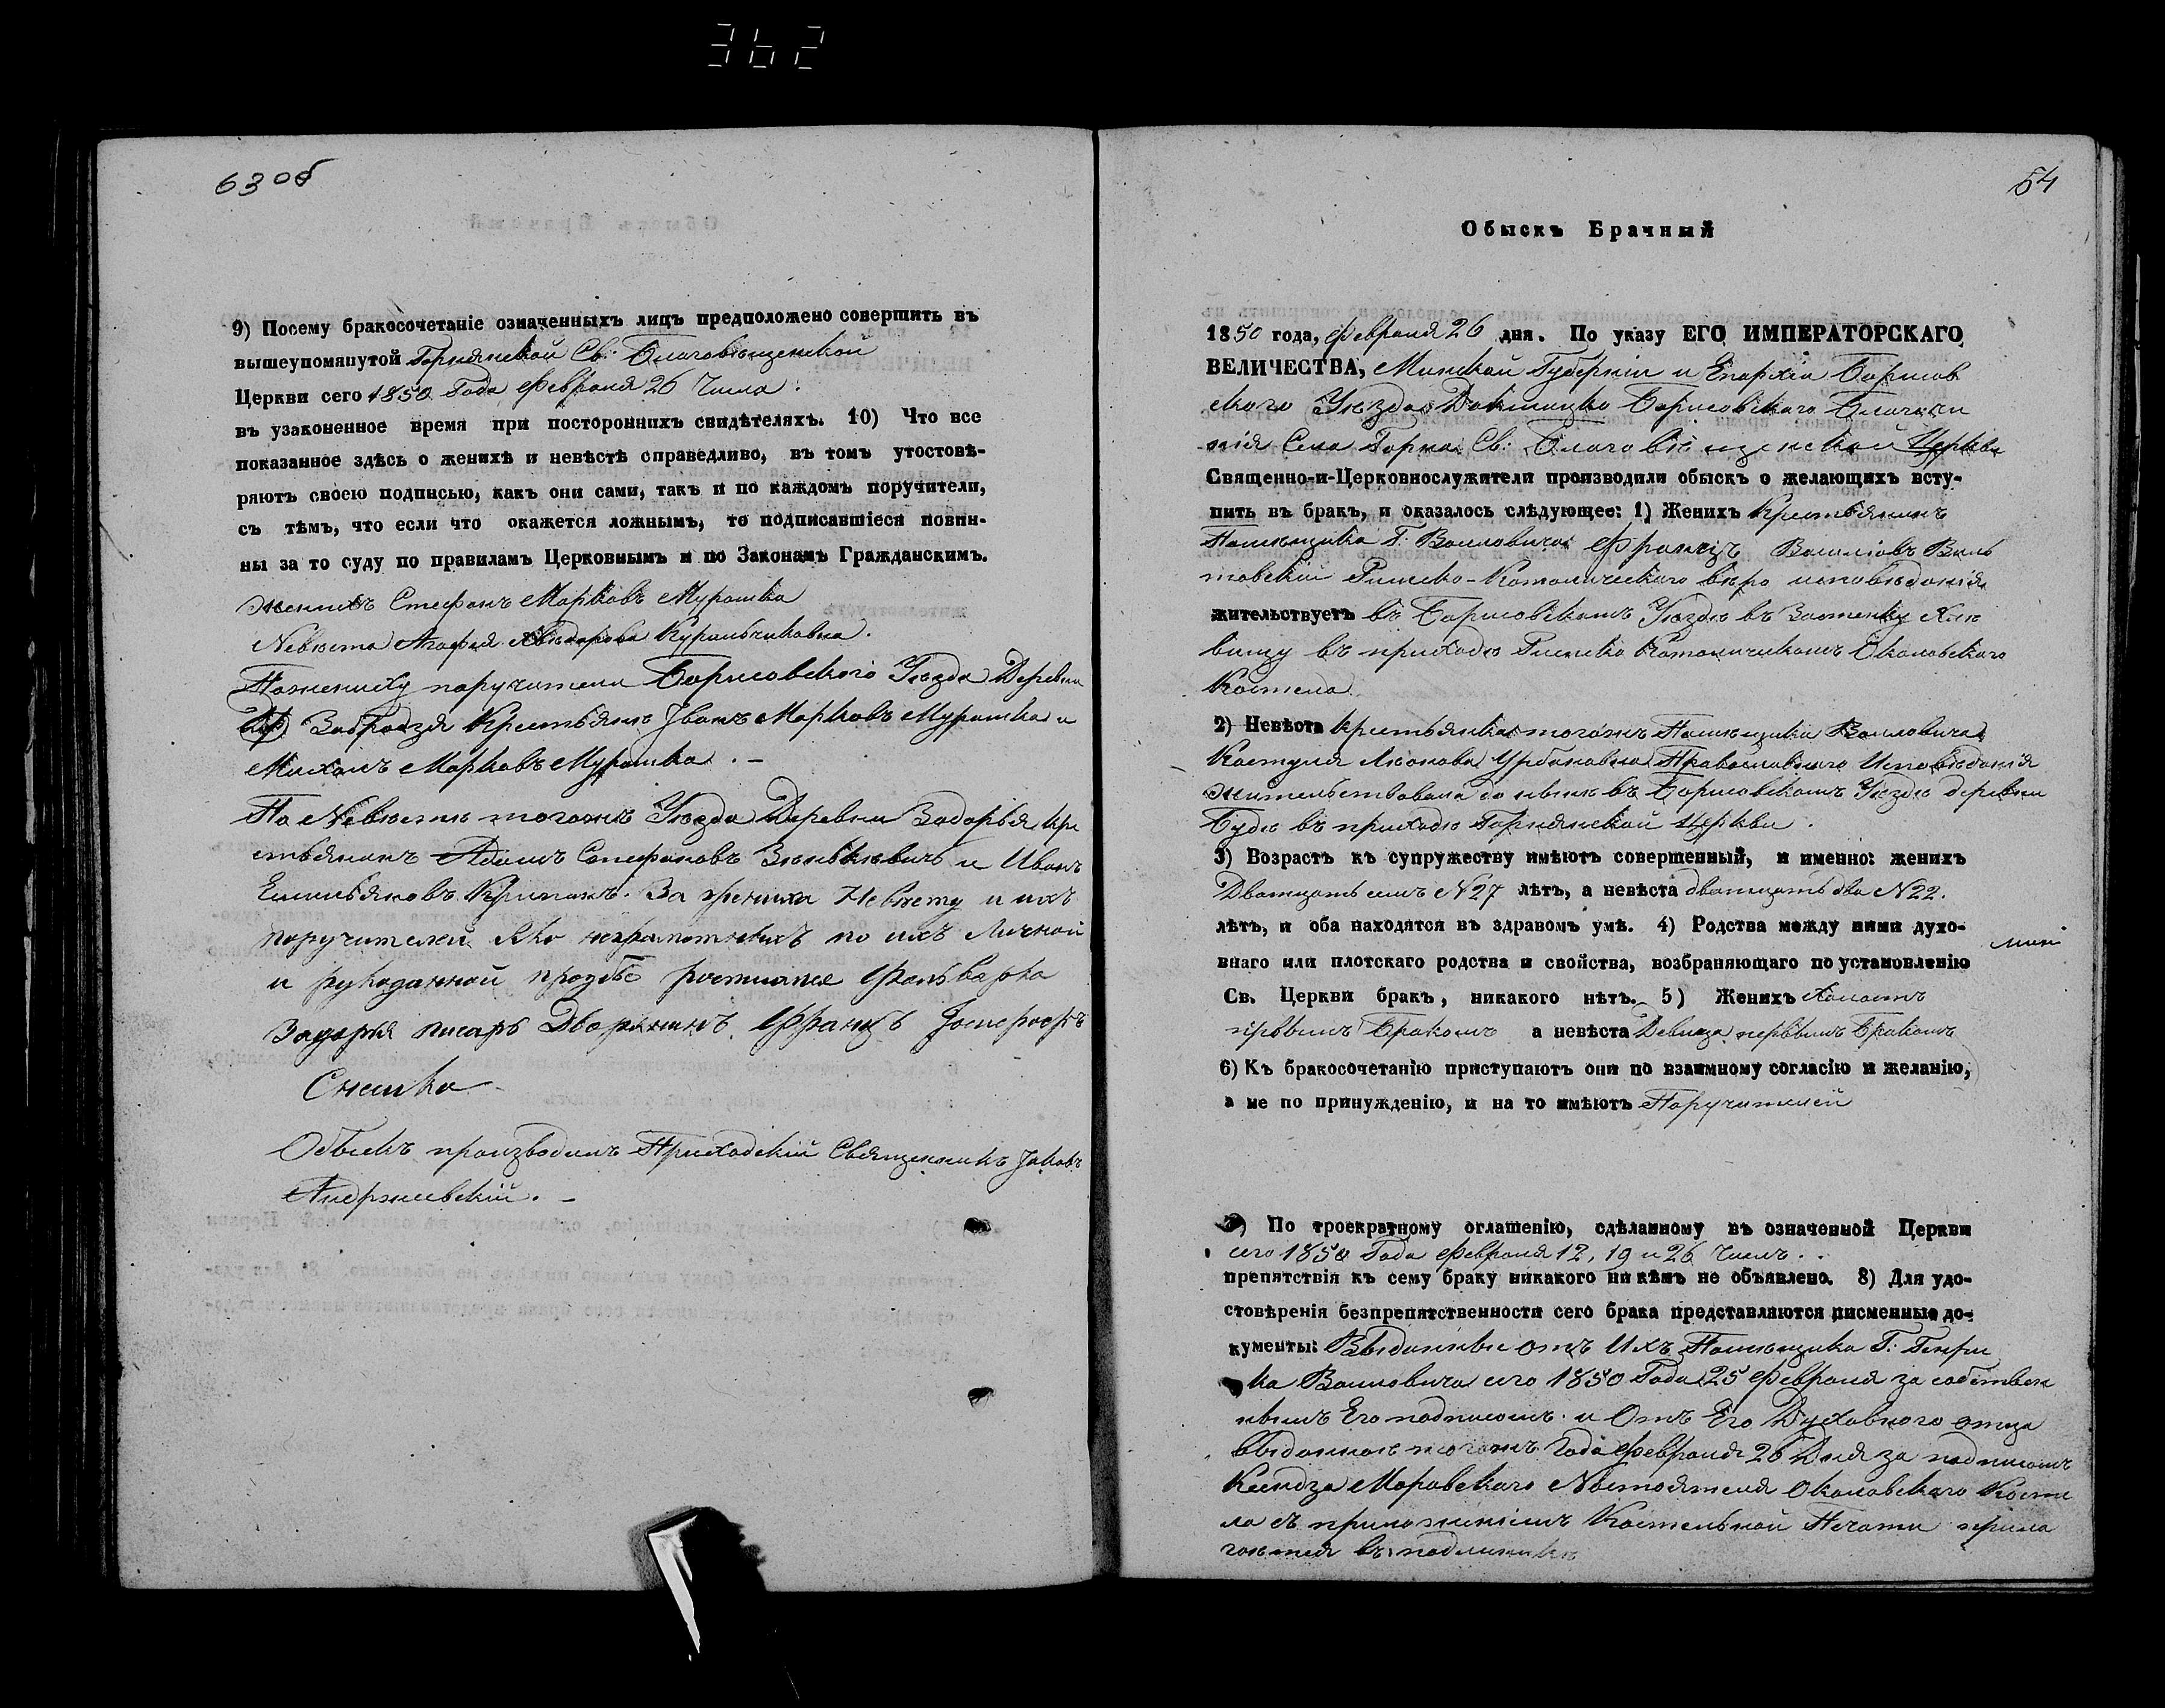 362
63 об
9) Посему бракосочетаніе означенныхъ лицъ предположено совершить въ
вышеупомянутой Горнянской Св: Благовѣщенской
Церкви сего 1850 Года Февраля 26 Числа.
въ узаконенное время при постороннихъ свидѣтеляхъ. 10) Что все
показанное здѣсь о женихѣ и невѣстѣ справедливо, въ томъ утостовѣ-
ряютъ своею подписью, какъ они сами, такъ и по каждомъ поручители,
съ тѣмъ, что если что окажется ложнымъ, то подписавшіеся повин-
ны за то суду по правиламъ Церковнымъ и по Законамъ Гражданскимъ.
Женихъ Стефанъ Марковъ Мурашка
Невѣста Агафія Курильчиковна.
По жениху поручители Борисовского Уѣзда Деревни
Крестьяне Іванъ Марковъ Мурашка и
Михалъ Марковъ Мурашка. –
По Невѣстѣ тогожъ Уѣзда Деревни Задорья кре
стьянинъ Адамъ Стефановъ Зѣнькевичъ и Иванъ
Емильяновъ За жениха Невѣсту и ихъ
поручителей яко неграмотныхъ по ихъ Личной
и рукоданной прозбѣ росписался Фольварка
Задорья писарь Дворянинъ Францъ Іосифовъ
Снешко
Обыскъ производилъ Приходскій Священникъ Іаковъ
Андржиевскій. –
54
Обыскъ Брачный
1850 года, Февраля 26 дня. По указу ЕГО ИМПЕРАТОРСКАГО
ВЕЛИЧЕСТВА, Минской Губерніи и Епархіи Борисов
ского Уѣзда Докшицко Борисовскаго Благочи
нія Села Горна Св: Благовѣщенской Церкви
Священно-и-Церковнослужители производили обыскъ о желающихъ всту-
пить въ бракъ, и оказалось слѣдующее: 1) Женихъ Крестьянинъ
Помѣщика Г. Воиловича Францъ
Римско-Католическаго вѣро исповѣданія
жительствуетъ въ Борисовскомъ Уѣздѣ въ Застенку
въ приходѣ Римско Католическомъ Околовскаго
Костела
2) Невѣста крестьянка тогожъ Помѣщика Воиловича
Костуля Урбановна Православнаго Исповѣданія
жительствовала до нынѣ въ Борисовскомъ Уѣздѣ деревни
Будѣ въ приходѣ Горнянской Церкви.
3) Возрастъ къ супружеству имѣютъ совершенный, и именно: женихъ
Дватцать семъ N 27 лѣтъ, а невѣста дватцать два N 22.
лѣтъ, и оба находятся въ здравомъ умѣ. 4) Родства между ними духо-
внаго или плотскаго родства и свойства, возбраняющаго по установленію
Св. Церкви бракъ, никакого нѣтъ. 5) Женихъ Холостъ
первымъ Бракомъ а невѣста Девица первымъ Бракомъ
6) Къ бракосочетанію приступаютъ они по взаимному согласію и желанію,
а не по принужденію, и на то имѣютъ Поручителей
7) По троекратному оглашенію, сдѣланному въ означенной Церкви
сего 1850 Года Февраля 12, 19 и 26 Числъ.
препятствія къ сему браку никакого ни кѣмъ не объявлено. 8) Для удо-
стовѣренія безпрепятственности сего брака представляются писменные до-
кументы: Выданные отъ Ихъ Помѣщика Г. Генри
ка Воиловича сего 1850 Года 25 Февраля за собствен
нымъ Его подписомъ и Отъ Его Духовного отца
выданное тогожъ Года Февраля 26 Дня за подписомъ
Ксендза Настоятеля Околовскаго Косте
ла съ приложеніемъ Костельной Печати прила
гается въ подлинникѣ